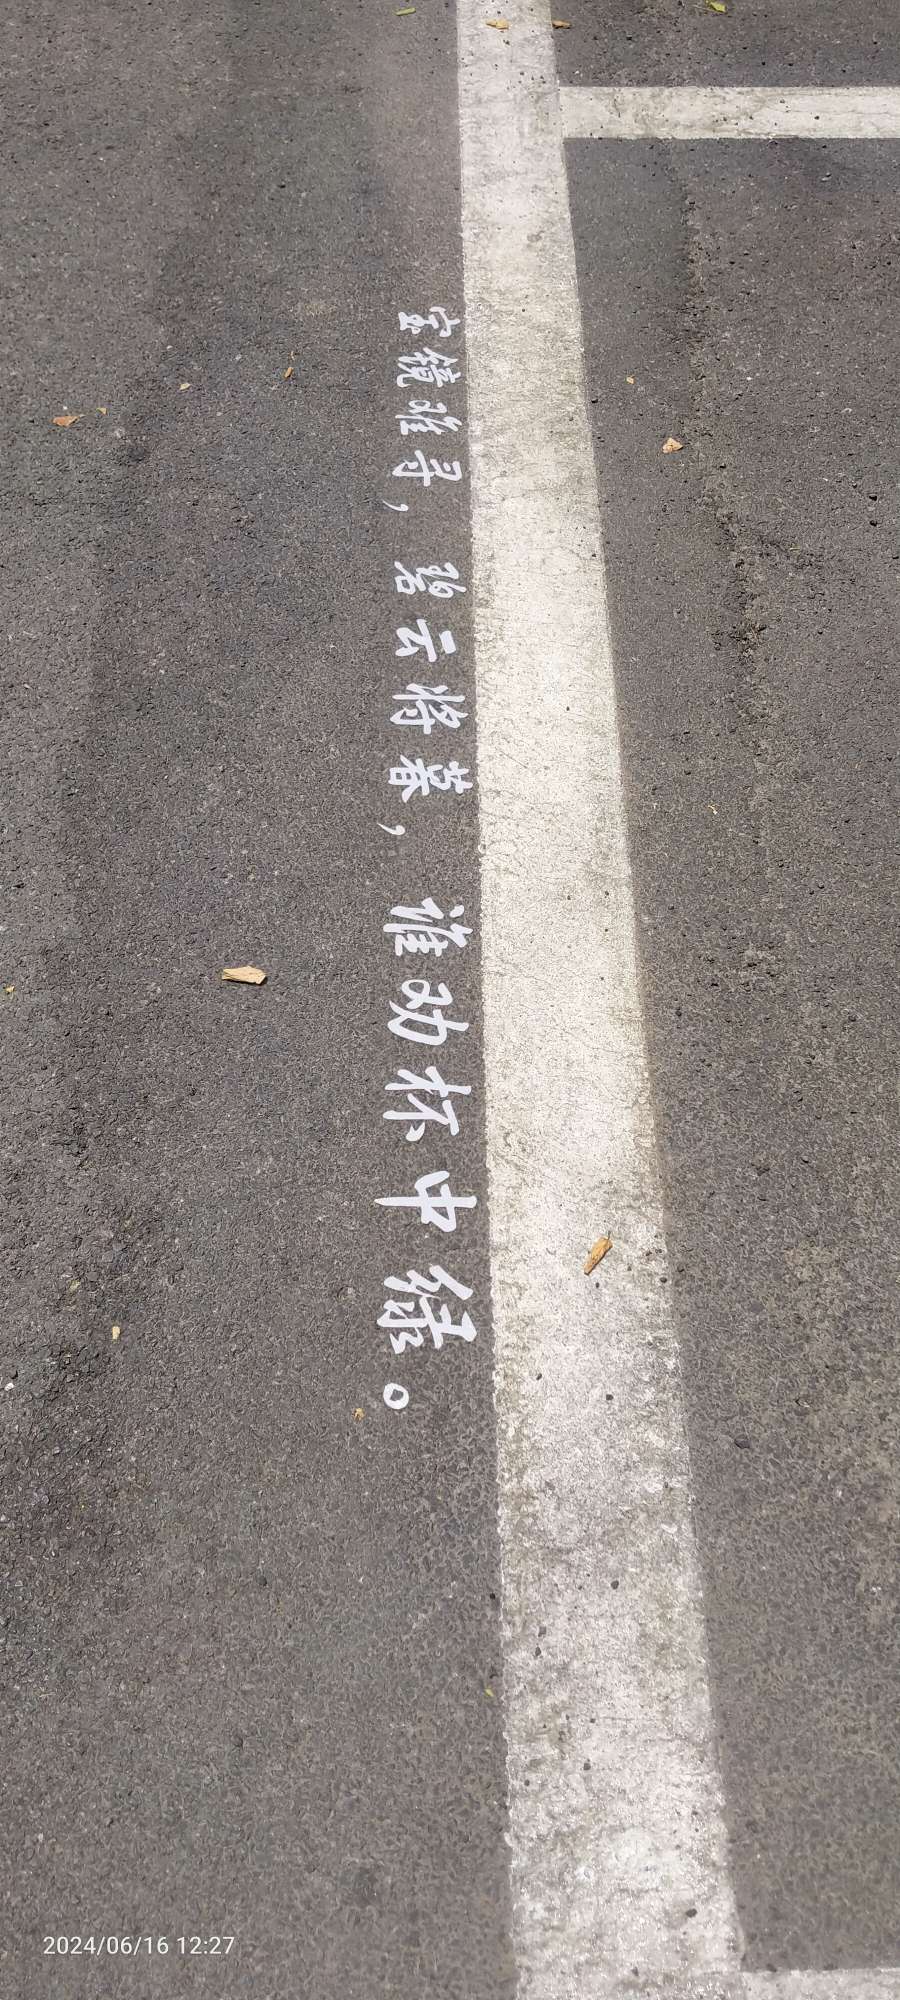 宝镜难寻，碧云将暮，谁劝杯中绿。
2024/06/16 12:27